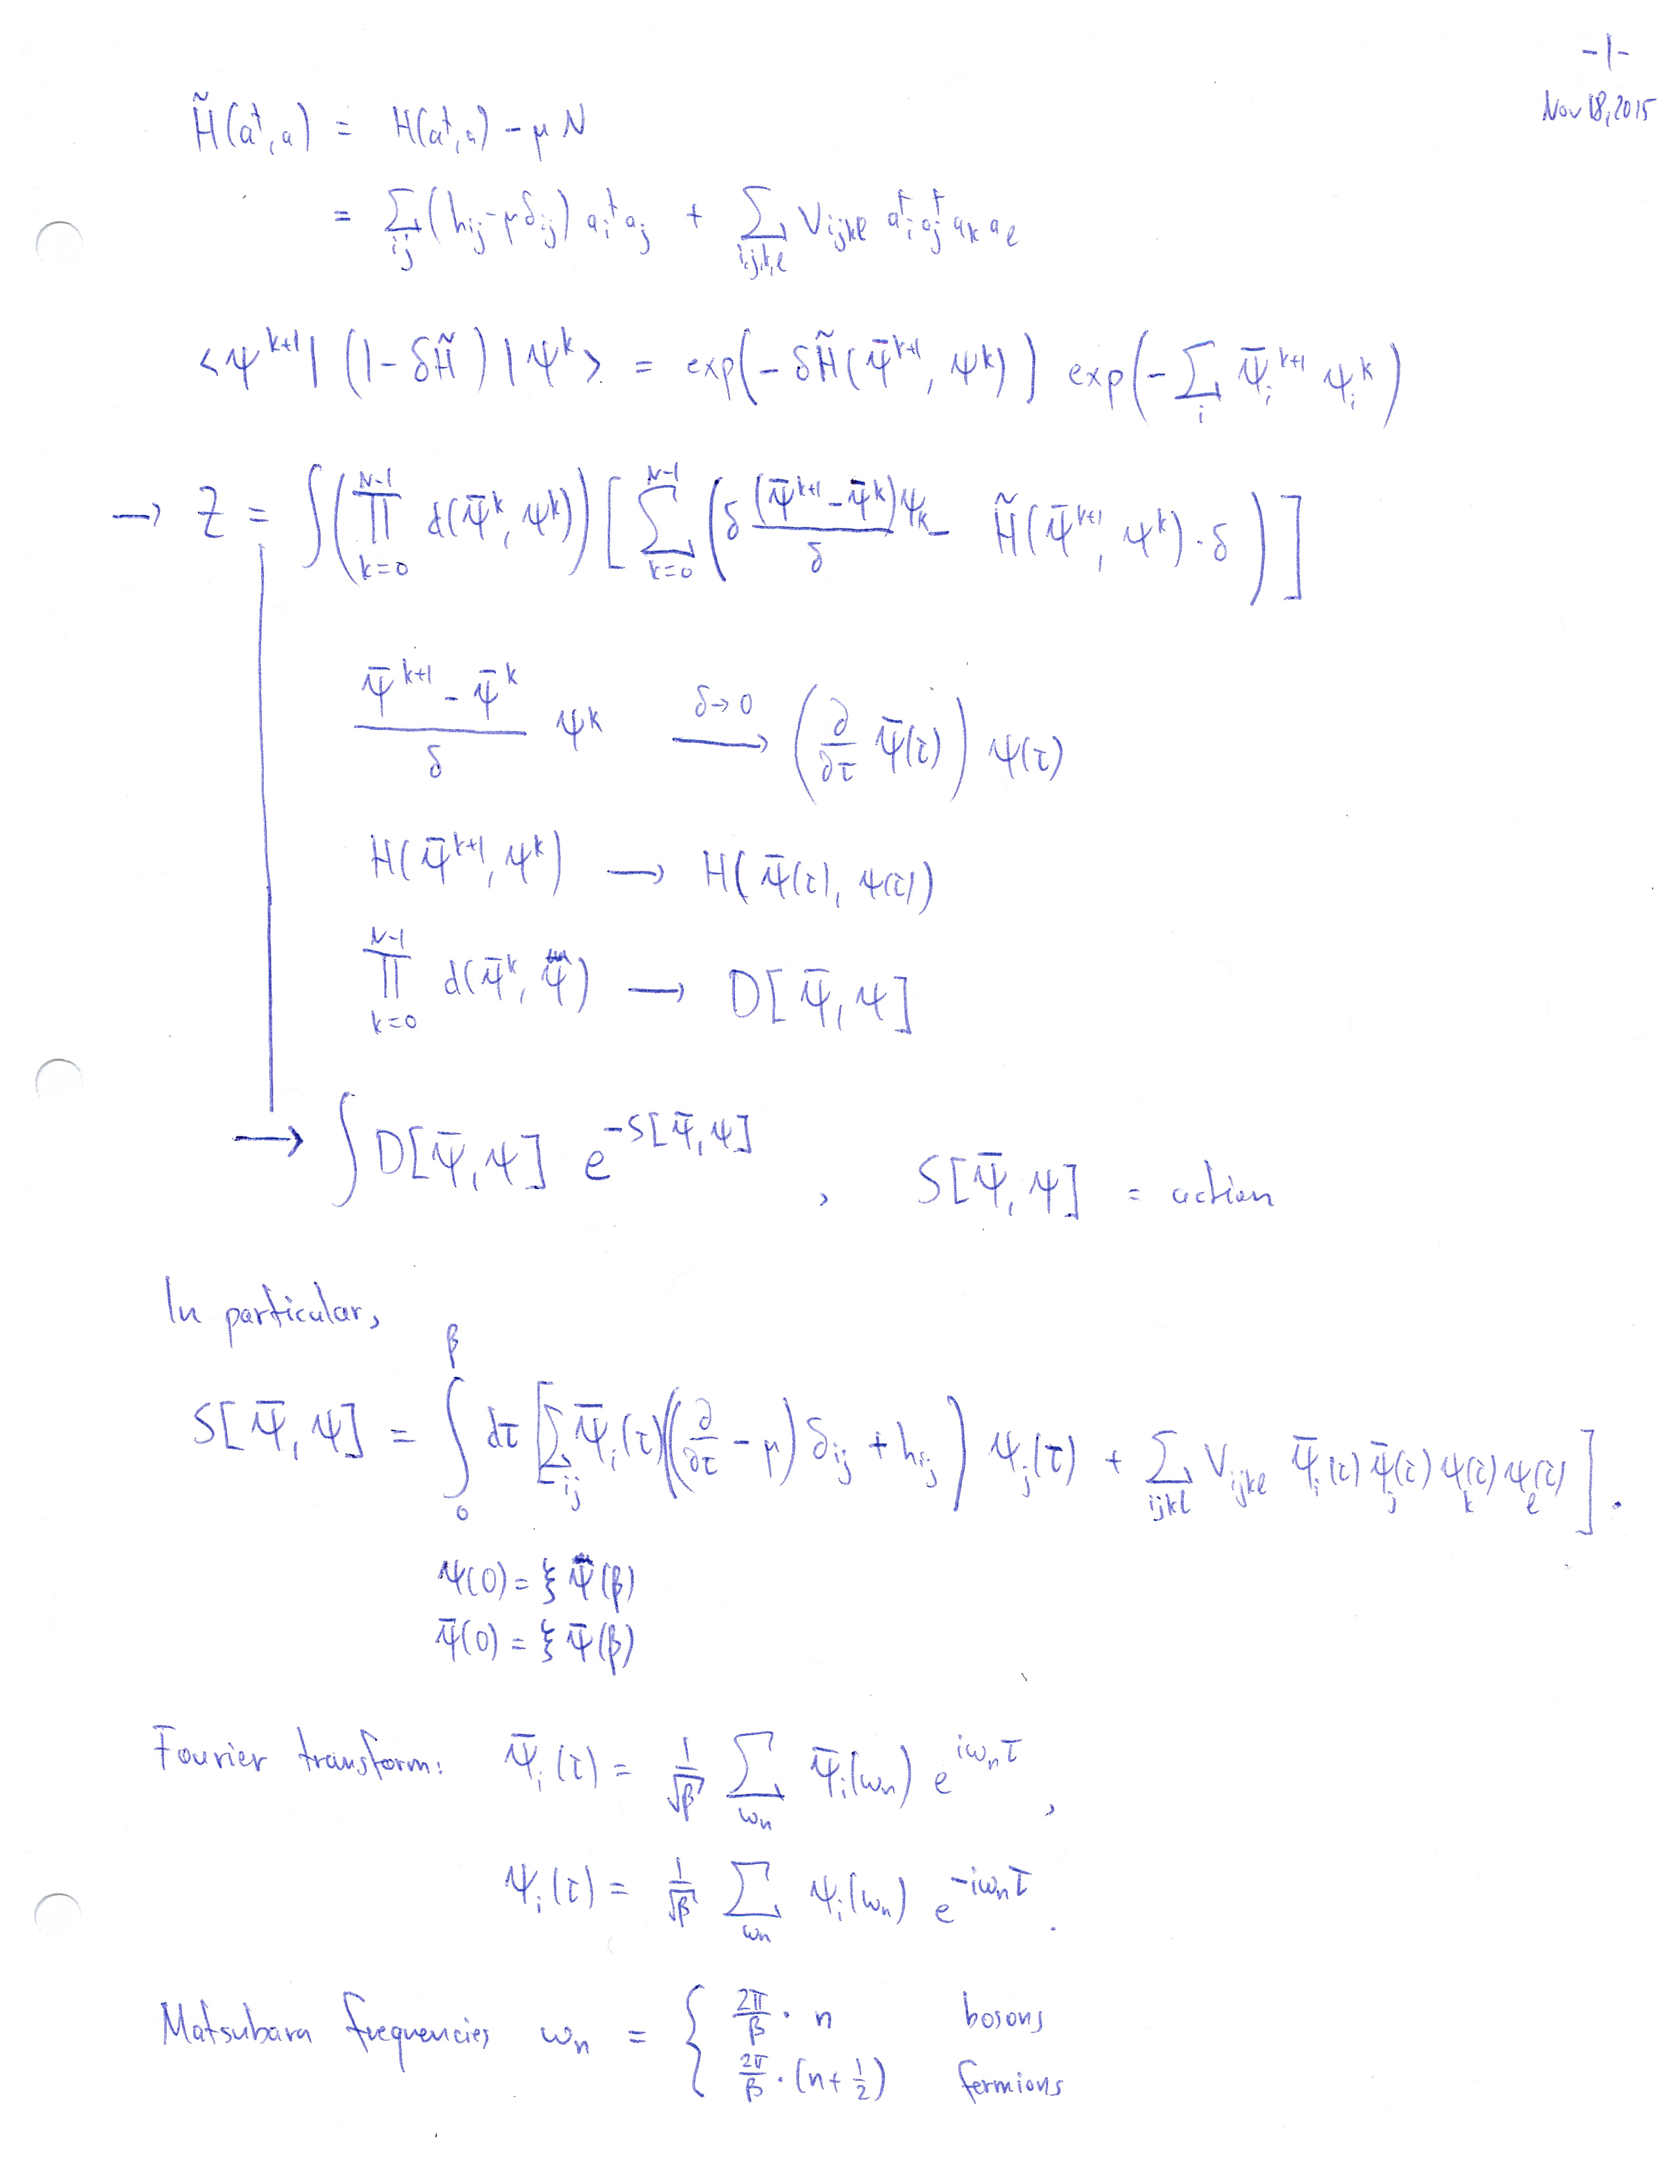 -1-
Nov 18, 2015
H̃(a†, a) = H(a†, a) - μ N
= ∑_{ij} (h_{ij} - μδ_{ij}) a_i† a_j + ∑_{i,j,k,l} V_{ijkl} a_i† a_j† a_k a_l
<ψ^{k+1}| (1 - δH̃) |ψ^k> = exp(-δH̃(ψ̄^{k+1}, ψ^k)) exp(-∑_i ψ̄_i^{k+1} ψ_i^k)
→ Z = ∫(∏_{k=0}^{N-1} d(ψ̄^k, ψ^k)) [∑_{k=0}^{N-1} (δ (ψ̄^{k+1} - ψ̄^k)ψ_k/δ - H̃(ψ̄^{k+1}, ψ^k)·δ)]
(ψ̄^{k+1} - ψ̄^k)/δ ψ^k →^{δ→0} (∂/∂τ ψ̄(τ)) ψ(τ)
H(ψ̄^{k+1}, ψ^k) → H(ψ̄(τ), ψ(τ))
∏_{k=0}^{N-1} d(ψ̄^k, ψ) → D[ψ̄, ψ]
→ ∫ D[ψ̄, ψ] e^{-S[ψ̄, ψ]} , S[ψ̄, ψ] = action
In particular,
S[ψ̄, ψ] = ∫_0^β dτ [∑_{ij} ψ̄_i(τ)((∂/∂τ - μ) δ_{ij} + h_{ij}) ψ_j(τ) + ∑_{ijkl} V_{ijkl} ψ̄_i(τ) ψ̄_j(τ) ψ_k(τ) ψ_l(τ)].
ψ(0) = ξ ψ(β)
ψ̄(0) = ξ ψ̄(β)
Fourier transform: ψ̄_i(τ) = 1/√β ∑_{ω_n} ψ̄_i(ω_n) e^{iω_nτ},
ψ_i(τ) = 1/√β ∑_{ω_n} ψ_i(ω_n) e^{-iω_nτ}.
Matsubara frequencies ω_n = { 2π/β · n bosons
2π/β · (n + 1/2) fermions